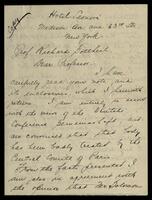 Hotel Leonori
Madison Ave and 63rd St
New York
Prof Richard Gottheil
Dear Professor.
I have
carefully read your note, and
its enclosures, which I herewith
return. I am entirely in accord
with the view of the United
Conference
are convinced that that body
has been badly treated by the
Central Committee of Paris
From the facts presented I
am also in agreement with
the opinion that Mr Solomon